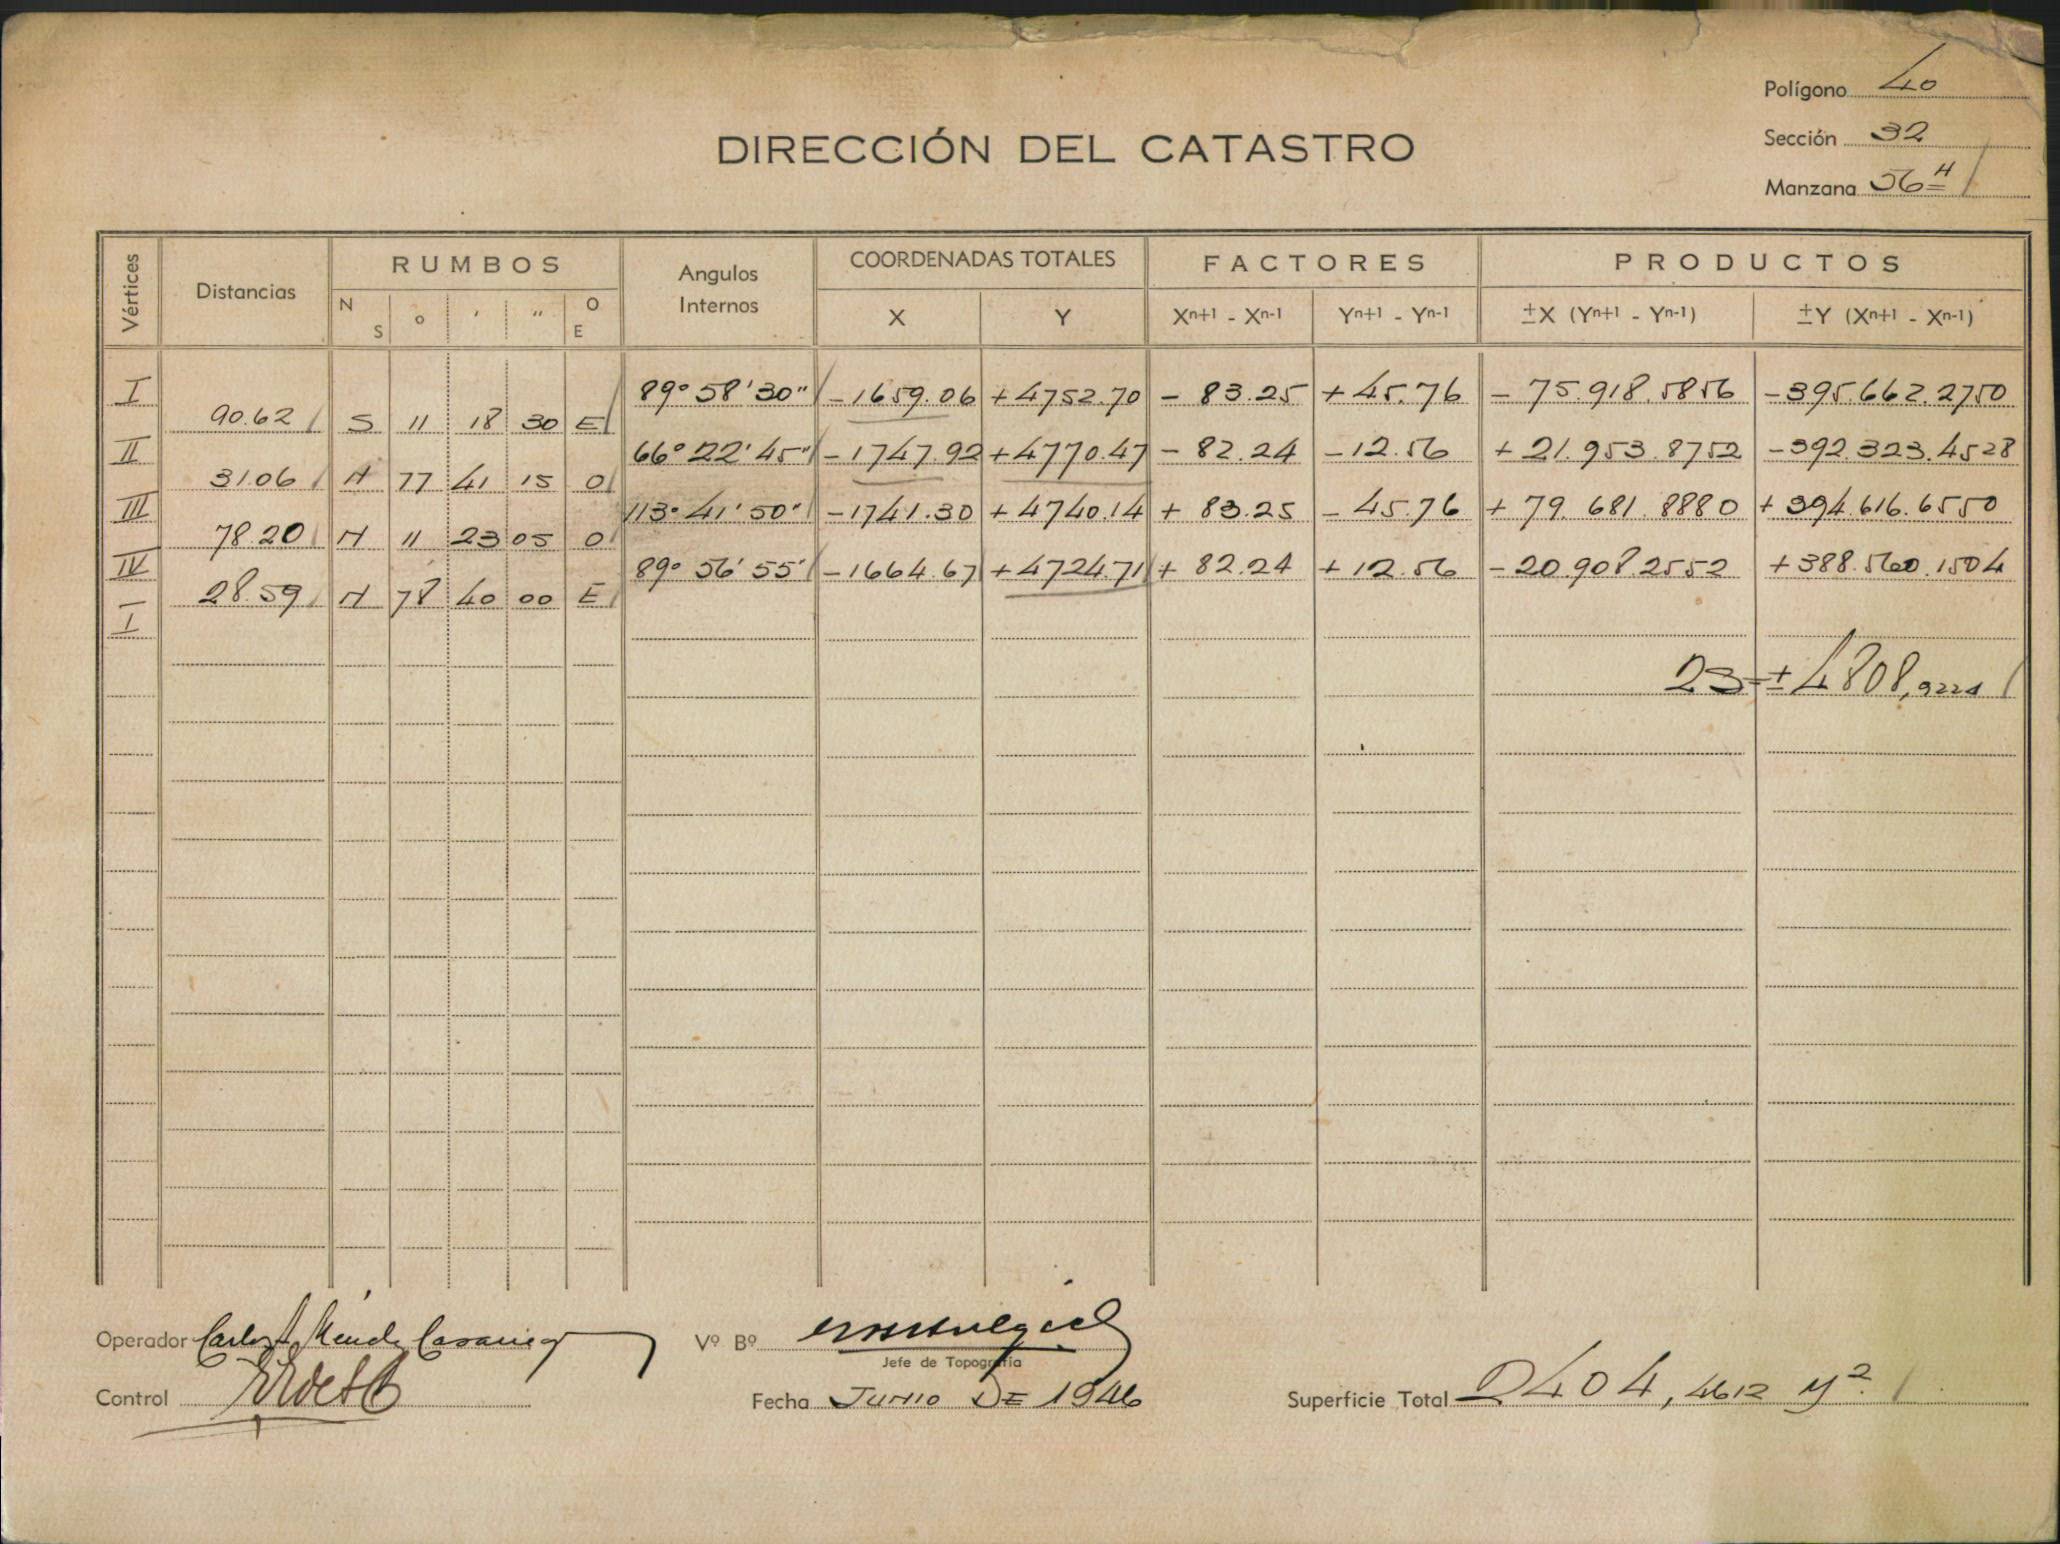 Polígono 40
DIRECCIÓN DEL CATASTRO
Sección 32
Manzana 56 H
Vértices Distancias RUMBOS Angulos Internos COORDENADAS TOTALES FACTORES PRODUCTOS
N S o ' " O E X Y Xn+1 - Xn-1 Yn+1 - Yn-1 ±X (Yn+1 - Yn-1) ±Y (Xn+1 - Xn-1)
I 89° 58' 30" -1659.06 +4752.70 - 83.25 +45.76 - 75.918.5856 -395.662.2750
90.62 S 11 18 30 E
II 66° 22' 45" -1747.92 +4770.47 - 82.24 -12.56 + 21.953.8752 -392.323.4528
31.06 N 77 41 15 O
III 113° 41' 50" -1741.30 +4740.14 + 83.25 - 45.76 + 79.681.8880 +394.616.6550
78.20 N 11 23 05 O
IV 89° 56' 55" -1664.67 +4724.71 + 82.24 +12.56 -20.908.2552 +388.560.1504
28.59 N 78 40 00 E
I
2S=±4808,9224
Operador Carlos A. Vº Bº
Jefe de Topografía
Control Fecha JUNIO DE 1946 Superficie Total 2404,4612 M2.